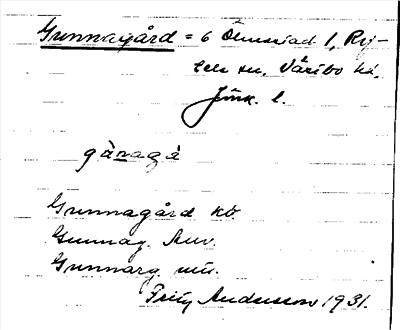 Gunnagård = 6 Ölmstad 1, Ry-
cels sn. Västbo hd.
Jönk. l.
gànagá
Gunnagård kb.
Gunnag. Auv.
Gunnarg. mu.
Fritz Andersson 1931.